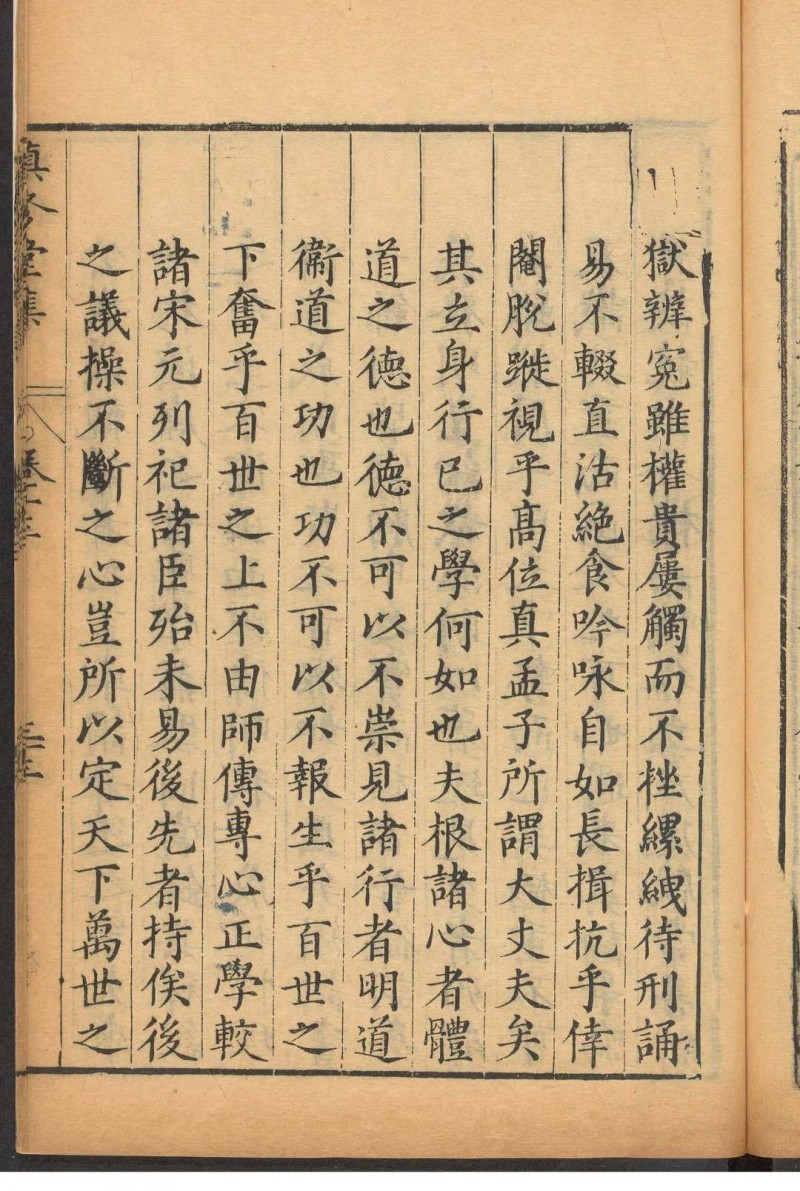 獄辨寃雖權貴屢觸而不挫縲絏待刑誦
易不輟直沽絶食吟咏自如長揖抗乎倖
閹脫蹝視乎髙位真孟子所謂大丈夫矣
其立身行已之學何如也夫根諸心者體
道之德也德不可以不崇見諸行者明道
衞道之功也功不可以不報生乎百世之
下奮乎百世之上不由師傳專心正學較
諸宋元列祀諸臣殆未易後先者持俟後
之議操不斷之心豈所以定天下萬世之